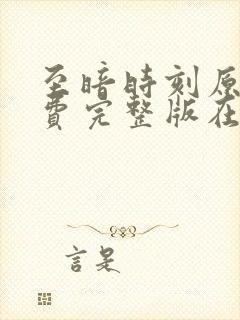 至暗時刻原
費完整版在
言是